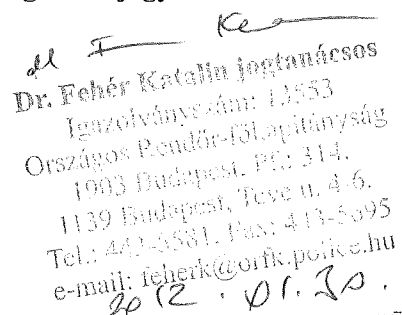 Dr. Fehér Katalin jogtanácsos
Igazolványszám: 13553
Országos Rendőr-főkapitányság
1903 Budapest, Pf.: 314.
1139 Budapest, Teve u. 4-6.
Tel.: 443-5581, Fax: 443-5695
e-mail: feherk@orfk.police.hu
2012. 01. 30.